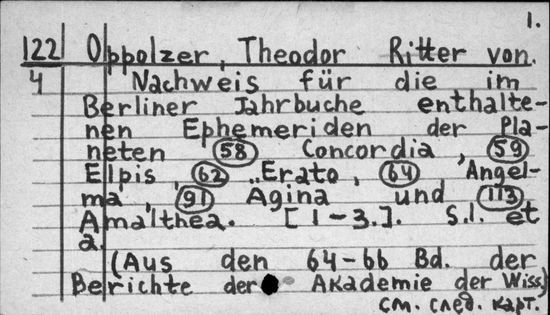 1.
122 Oppolzer, Theodor Ritter von.
4 Nachweis für die im
Berliner Jahrbuche enthalte-
nen Ephemeriden der Pla-
neten (58) Concordia, (59)
Elpis, (62) Erato, (64) Angel-
ma, (91) Agina und (113)
Amalthea. [1-3.]. S.l. et
a.
(Aus den 64-66 Bd. der
Berichte der Akademie der Wiss)
см. след. карт.